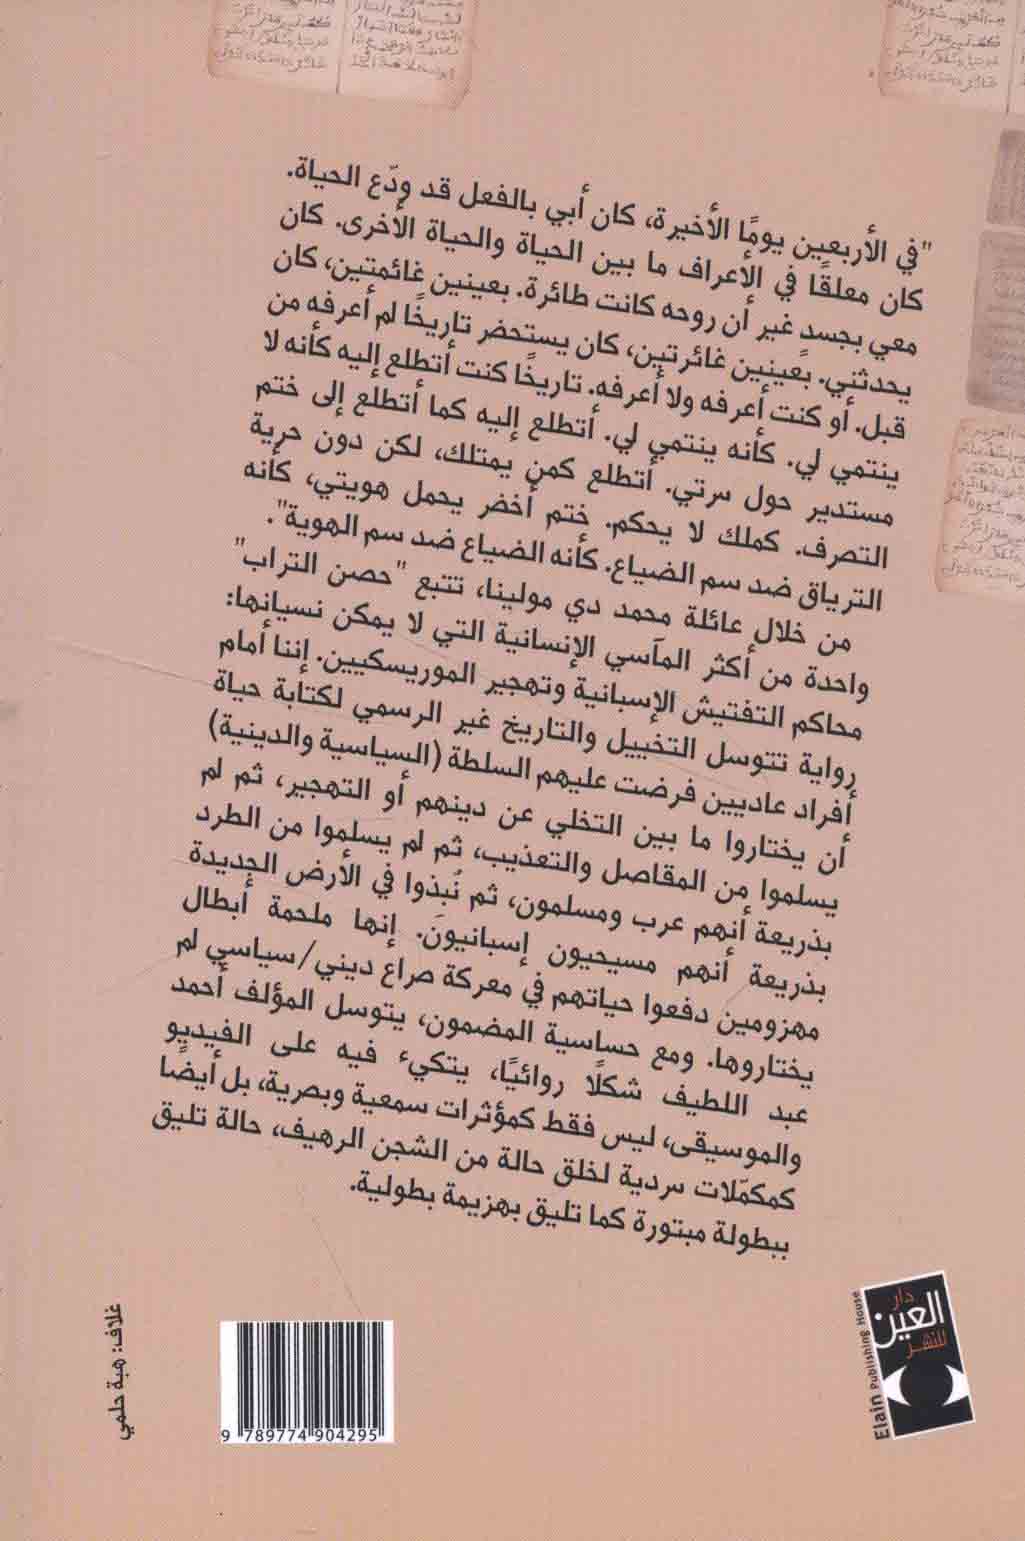 "في الأربعين يومًا الأخيرة، كان أبي بالفعل قد ودّع الحياة.
كان معلقًا في الأعراف ما بين الحياة والحياة الأخرى. كان
معي بجسدٍ غير أن روحه كانت طائرة. بعينين غائمتين، كان
يحدثني. بعينين غائرتين، كان يستحضر تاريخًا لم أعرفه من
قبل. أو كنت أعرفه ولا أعرفه. تاريخًا كنت أتطلع إليه كأنه لا
ينتمي لي. كأنه ينتمي لي. أتطلع إليه كما أتطلع إلى ختم
مستدير حول سرتي. أتطلع كمن يمتلك، لكن دون حرية
التصرف. كملك لا يحكم. ختم أخضر يحمل هويتي، كأنه
الترياق ضد سم الضياع. كأنه الضياع ضد سم الهوية".
من خلال عائلة محمد دي مولينا، تتبع "حصن التراب"
واحدة من أكثر المآسي الإنسانية التي لا يمكن نسيانها:
محاكم التفتيش الإسبانية وتهجير الموريسكيين. إننا أمام
رواية تتوسل التخييل والتاريخ غير الرسمي لكتابة حياة
أفراد عاديين فرضت عليهم السلطة (السياسية والدينية)
أن يختاروا ما بين التخلي عن دينهم أو التهجير، ثم لم
يسلموا من المقاصل والتعذيب، ثم لم يسلموا من الطرد
بذريعة أنهم عرب ومسلمون، ثم نُبذوا في الأرض الجديدة
بذريعة أنهم مسيحيون إسبانيون. إنها ملحمة أبطال
مهزومين دفعوا حياتهم في معركة صراع ديني/سياسي لم
يختاروها. ومع حساسية المضمون، يتوسل المؤلف أحمد
عبد اللطيف شكلًا روائيًا، يتكيء فيه على الفيديو
والموسيقى، ليس فقط كمؤثرات سمعية وبصرية، بل أيضًا
كمكمّلات سردية لخلق حالة من الشجن الرهيف، حالة تليق
ببطولة مبتورة كما تليق بهزيمة بطولية.
دار
العين
للنشر
Elain Publishing House
غلاف: هبة حلمي
9 789774 904295